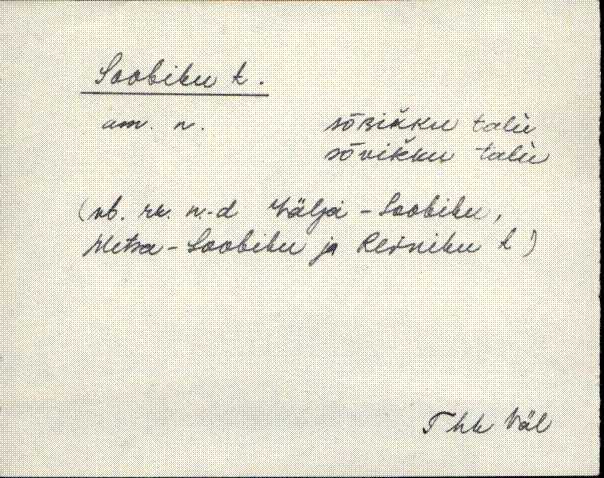 Soobiku t.
am. n. sōʙikku talu
sōvikku talu
(vb. rk. n-d Välja-Soobiku,
Metsa-Soobiku ja Reiniku t)
Thk Väl